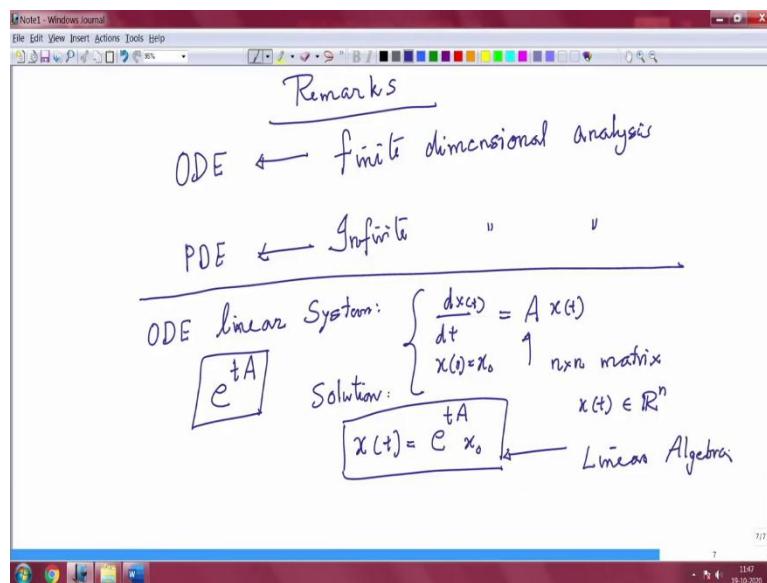 Note1 - Windows Journal
File Edit View Insert Actions Tools Help
Remarks
ODE ← finite dimensional analysis
PDE ← Infinite " "
ODE linear System: { dx(t)/dt = A x(t)
x(0)=x₀ ↑ n×n matrix
e^{tA}
Solution: x(t) ∈ ℝⁿ
x(t) = e^{tA} x₀ ← Linear Algebra
7/7
7
11:47
19-10-2020